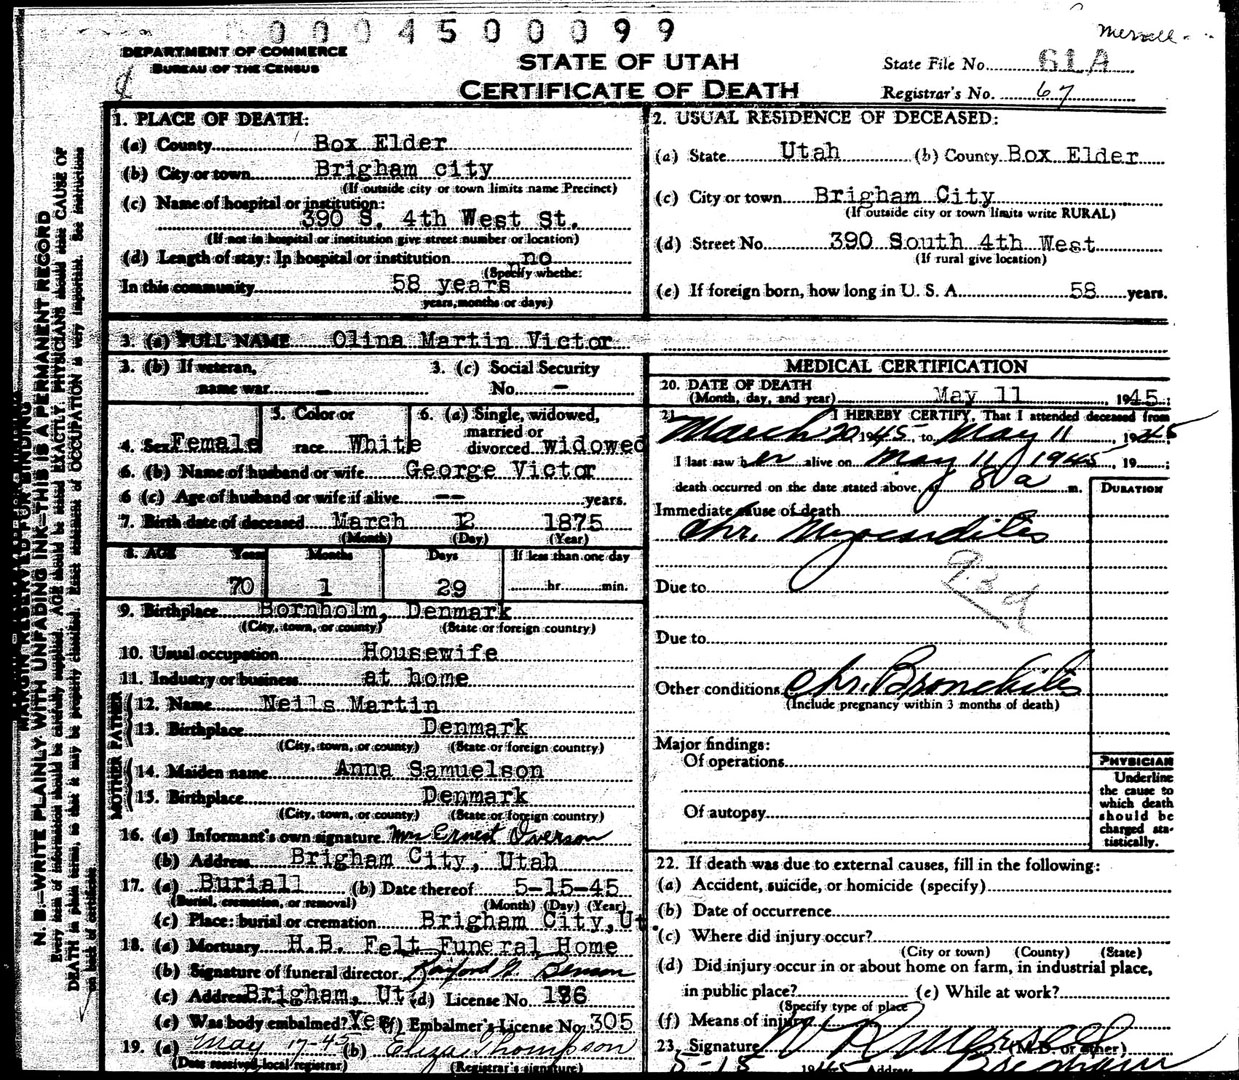 0004500099
Merrell
DEPARTMENT OF COMMERCE
BUREAU OF THE CENSUS
STATE OF UTAH
CERTIFICATE OF DEATH
State File No. 61A
Registrar's No. 67
MARGIN RESERVED FOR BINDING
N. B.—WRITE PLAINLY WITH UNFADING INK—THIS IS A PERMANENT RECORD
Every item of information should be carefully supplied. AGE should be stated EXACTLY. PHYSICIANS should state CAUSE OF
DEATH in plain terms, so that it may be properly classified. Exact statement of OCCUPATION is very important. See instructions
on back of certificate.
1. PLACE OF DEATH:
(a) County Box Elder
(b) City or town Brigham city
(If outside city or town limits name Precinct)
(c) Name of hospital or institution:
390 S. 4th West St.
(If not in hospital or institution give street number or location)
(d) Length of stay: In hospital or institution no
(Specify whether
In this community 58 years
years, months or days)
2. USUAL RESIDENCE OF DECEASED:
(a) State Utah (b) County Box Elder
(c) City or town Brigham City
(If outside city or town limits write RURAL)
(d) Street No. 390 South 4th West
(If rural give location)
(e) If foreign born, how long in U. S. A. 58 years.
3. (a) FULL NAME Olina Martin Victor
3. (b) If veteran, name war —
3. (c) Social Security No. —
4. Sex Female
5. Color or race White
6. (a) Single, widowed, married or divorced widowed
6. (b) Name of husband or wife George Victor
6 (c) Age of husband or wife if alive -- years.
7. Birth date of deceased March 12 1875
(Month) (Day) (Year)
8. AGE Years Months Days If less than one day
70 1 29 hr. min.
9. Birthplace Bornholm, Denmark
(City, town, or county) (State or foreign country)
10. Usual occupation Housewife
11. Industry or business at home
FATHER
12. Name Neils Martin
13. Birthplace Denmark
(City, town, or county) (State or foreign country)
MOTHER
14. Maiden name Anna Samuelson
15. Birthplace Denmark
(City, town, or county) (State or foreign country)
16. (a) Informant's own signature Mrs Ernest Overson
(b) Address Brigham City, Utah
17. (a) Buriall (b) Date thereof 5-15-45
(Burial, cremation, or removal) (Month) (Day) (Year)
(c) Place: burial or cremation Brigham City, Ut.
18. (a) Mortuary H.B. Felt Funeral Home
(b) Signature of funeral director Benson
(c) Address Brigham, Ut (d) License No. 186
(e) Was body embalmed? Yes (f) Embalmer's License No. 305
19. (a) May 17-45 (b) Eliza Thompson
(Date received local registrar) (Registrar's signature)
MEDICAL CERTIFICATION
20. DATE OF DEATH
(Month, day, and year) May 11 1945;
21. I HEREBY CERTIFY, That I attended deceased from
March 20 1945, to May 11, 1945
I last saw her alive on May 11 1945, 19
death occurred on the date stated above, at 8 a m.
DURATION
Immediate cause of death
Chr. Myocarditis
93d
Due to
Due to
Other conditions Chr. Bronchitis
(Include pregnancy within 3 months of death)
Major findings:
Of operations
Of autopsy
PHYSICIAN
Underline
the cause to
which death
should be
charged sta-
tistically.
22. If death was due to external causes, fill in the following:
(a) Accident, suicide, or homicide (specify)
(b) Date of occurrence
(c) Where did injury occur?
(City or town) (County) (State)
(d) Did injury occur in or about home on farm, in industrial place,
in public place? (e) While at work?
(Specify type of place
(f) Means of injury
23. Signature W R Merrell (M.D. or other)
5-15 1945 Address Brigham